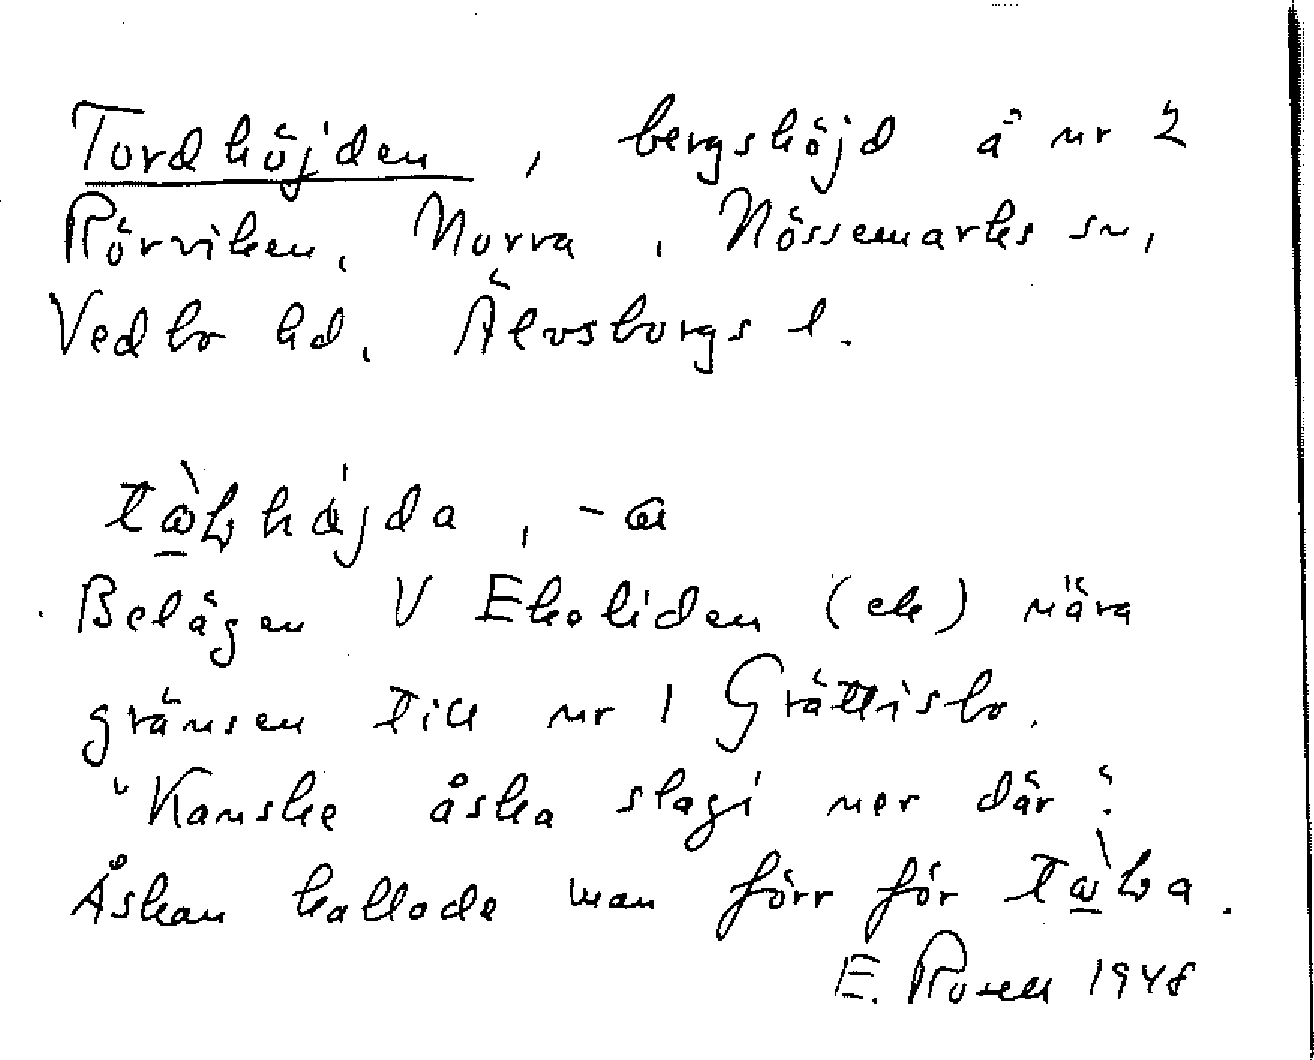 Tordhöjden, bergshöjd å nr 2
Rörviken, Norra, Nössemarks sn,
Vedbo hd, Älvsborgs l.
, -a
Belägen V Ekeliden (ek) nära
gränsen till nr 1 Grättisbo.
"Kanske åska slagi ner där".
Åskan kallade man förr för
E. Rosell 1948